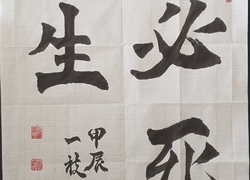 必死
生
甲辰
一枝